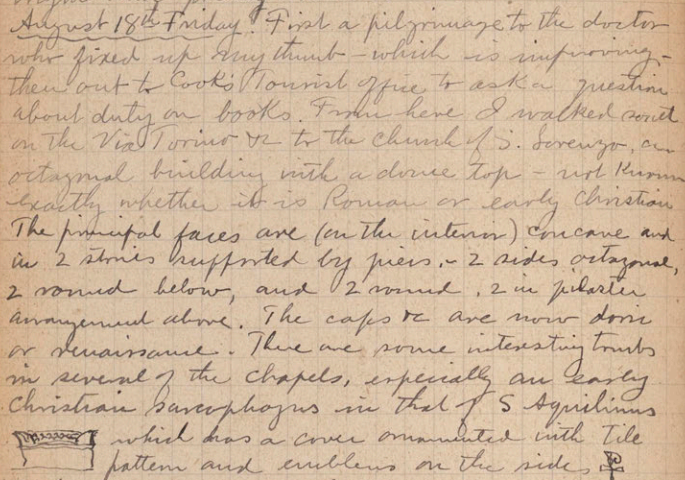 August 18th Friday. First a pilgrimage to the doctor
who fixed up my thumb – which is improving –
then out to Cook's Tourist office to ask a question
about duty on books. From here I walked south
on the Via Torino &c to the church of S. Lorenzo, an
octagonal building with a dome top – not known
exactly whether it is Roman or early Christian
The principal faces are (on the interior) concave and
in 2 stories supported by piers, – 2 sides octagonal,
2 round below, and 2 round, 2 in pilaster
arrangement above. The caps &c are now doric
or renaissance. There are some interesting tombs
in several of the chapels, especially an early
Christian sarcophagus in that of S Aquilinus
which has a cover ornamented with tile
pattern and emblems on the sides